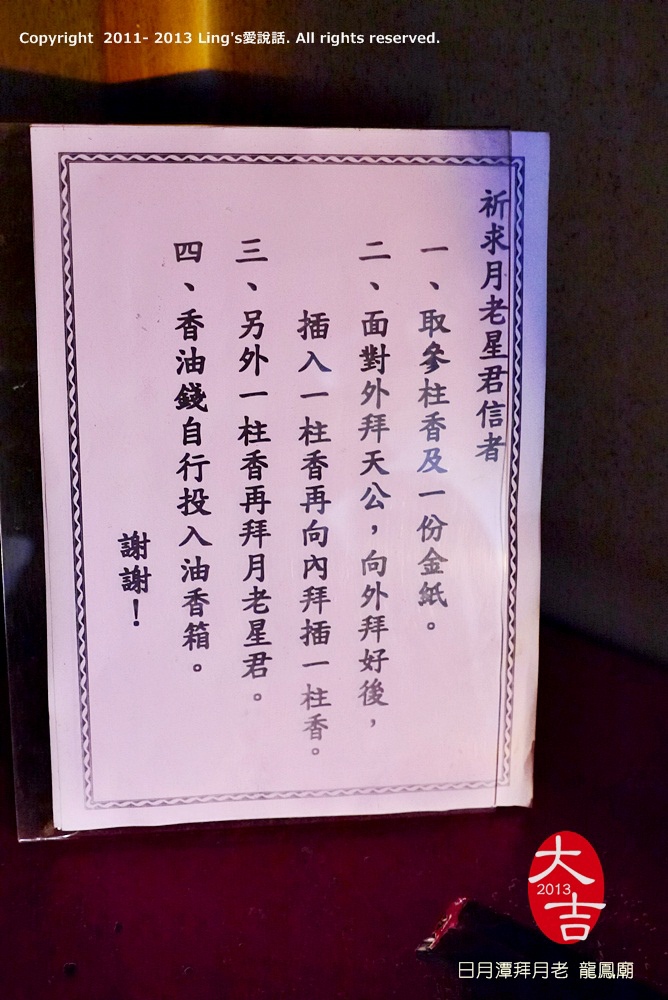 Copyright  2011- 2013 Ling's愛說話. All rights reserved.
祈求月老星君信者
一、取參柱香及一份金紙。
二、面對外拜天公，向外拜好後，
插入一柱香再向內拜插一柱香。
三、另外一柱香再拜月老星君。
四、香油錢自行投入油香箱。
謝謝！
大
2013
吉
日月潭拜月老 龍鳳廟